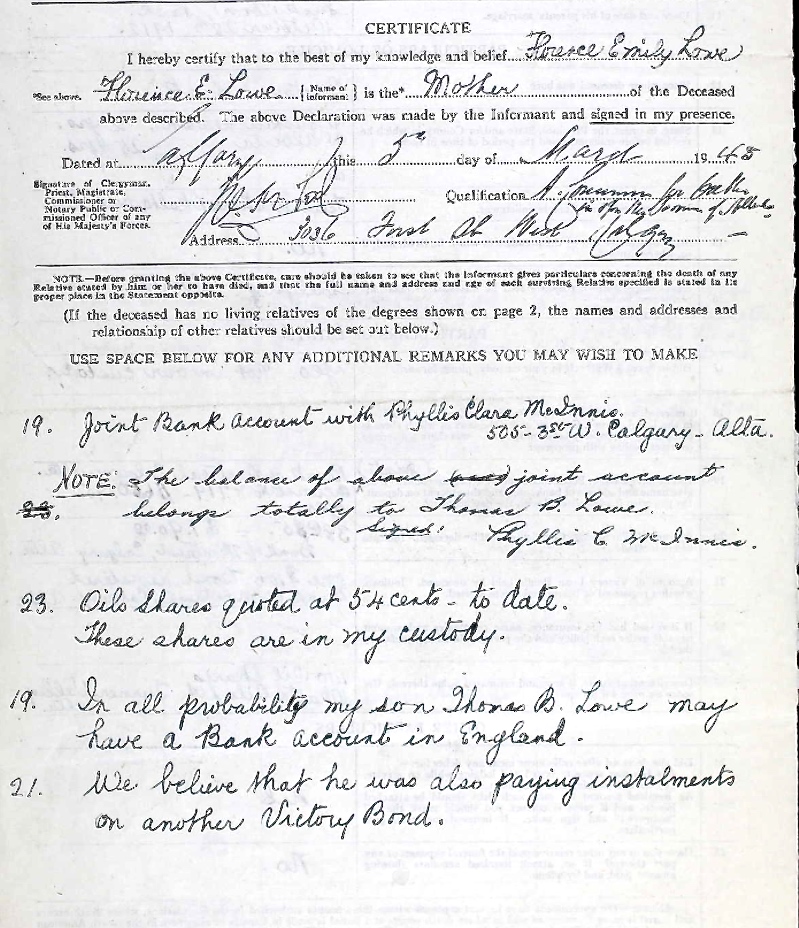 CERTIFICATE
I hereby certify that to the best of my knowledge and belief Florence Emily Lowe
*See above. Florence E. Lowe {Name of Informant} is the* Mother of the Deceased
above described. The above Declaration was made by the Informant and signed in my presence.
Dated at Calgary this 5th day of March 1945
Signature of Clergyman,
Priest, Magistrate,
Commissioner or
Notary Public or Com-
missioned Officer of any
of His Majesty's Forces.
Qualification A Commissioner for Oaths
in & for the Province of Alberta
Address 3036 First St West Calgary
NOTE.—Before granting the above Certificate, care should be taken to see that the informant gives particulars concerning the death of any
Relative stated by him or her to have died, and that the full name and address and age of each surviving Relative specified is stated in its
proper place in the Statement opposite.
(If the deceased has no living relatives of the degrees shown on page 2, the names and addresses and
relationship of other relatives should be set out below.)
USE SPACE BELOW FOR ANY ADDITIONAL REMARKS YOU MAY WISH TO MAKE
19. Joint Bank Account with Phyllis Clara McInnis.
505-3rd St W. Calgary - Alta.
NOTE: The balance of above joint account
23. belongs totally to Thomas B. Lowe.
Signed: Phyllis C. McInnis.
23. Oils Shares quoted at 54 cents - to date.
These shares are in my custody.
19. In all probability my son Thomas B. Lowe may
have a Bank account in England.
21. We believe that he was also paying instalments
on another Victory Bond.